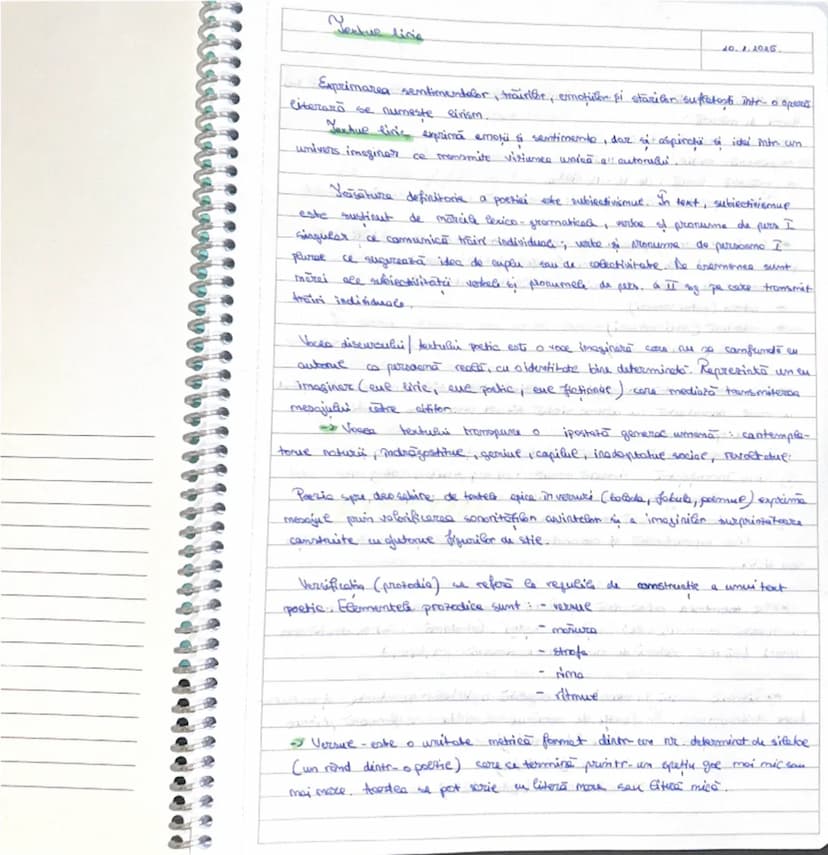 Textul liric
20.1.2025.
Exprimarea sentimentelor, trăirilor, emoțiilor și stărilor sufletești într-o operă
literară se numește lirism.
Textul liric exprimă emoții și sentimente, dar și aspirații și idei într-un
univers imaginar ce transmite viziunea unică a autorului.
Trăsătura definitorie a poeziei este subiectivismul. În text, subiectivismul
este susținut de mărcile lexico-gramaticale, verbe și pronume de pers I
singular ce comunică trăiri individuale; verbe și pronume de persoana I
plural ce sugerează idea de cuplu sau de colectivitate. De asemenea sunt
mărci ale subiectivității verbele și pronumele de pers. a II sg pe care transmit
trăiri individuale.
Vocea discursului/textului poetic este o voce imaginară care nu se confundă cu
autorul ca persoană reală, cu o identitate bine determinată. Reprezintă un eu
imaginar (eul liric, eul poetic, eul ficțional) care mediază transmiterea
mesajului către cititor.
→ Vocea textului transpune o ipostază general umană: contempla-
torul naturii, îndrăgostitul, geniul, copilul, inadaptatul social, revoltatul.
Poezia spre deosebire de textele epice în versuri (balada, fabula, poemul) exprimă
mesajul prin valorificarea sonorităților cuvintelor și a imaginilor surprinzătoare
construite cu ajutorul figurilor de stil.
Versificația (prozodia) se referă la regulile de construcție a unui text
poetic. Elementele prozodice sunt: - versul
- măsura
- strofa
- rima
- ritmul
→ Versul - este o unitate metrică format dintr-un nr. determinat de silabe
(un rând dintr-o poezie) care se termină printr-un spațiu gol mai mic sau
mai mare. Acestea se pot scrie cu literă mare sau literă mică.